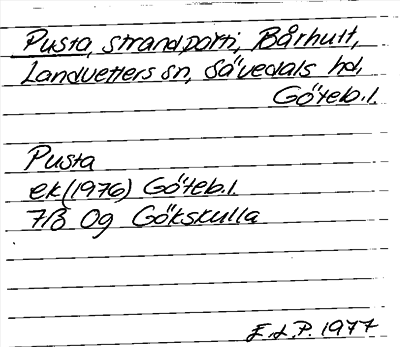 Pusta, strandparti, Bårhult,
Landvetters sn, Sävedals hd,
Göteb.l.
Pusta
ek (1976) Göteb.l.
7B 0g Gökskulla
E.d.P. 1977